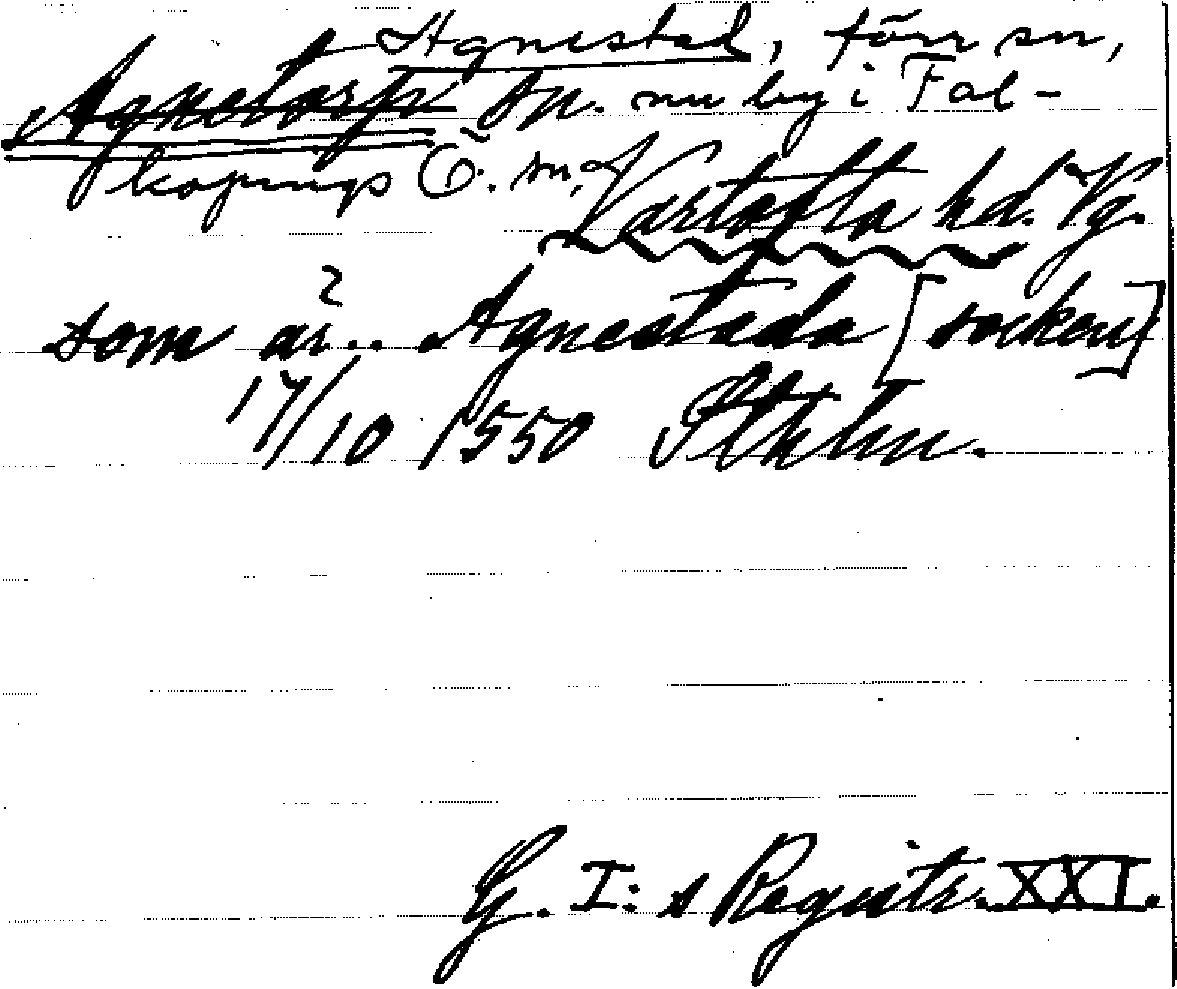 Agnestad, förr sn,
Agnetorps sn. nu by i Fal-
köpings Ö. sn,
Vartofta hd. Vg.
som är .. Agnestada [socken]
17/10 1550 Sthlm.
G. I:s Registr. XXI.